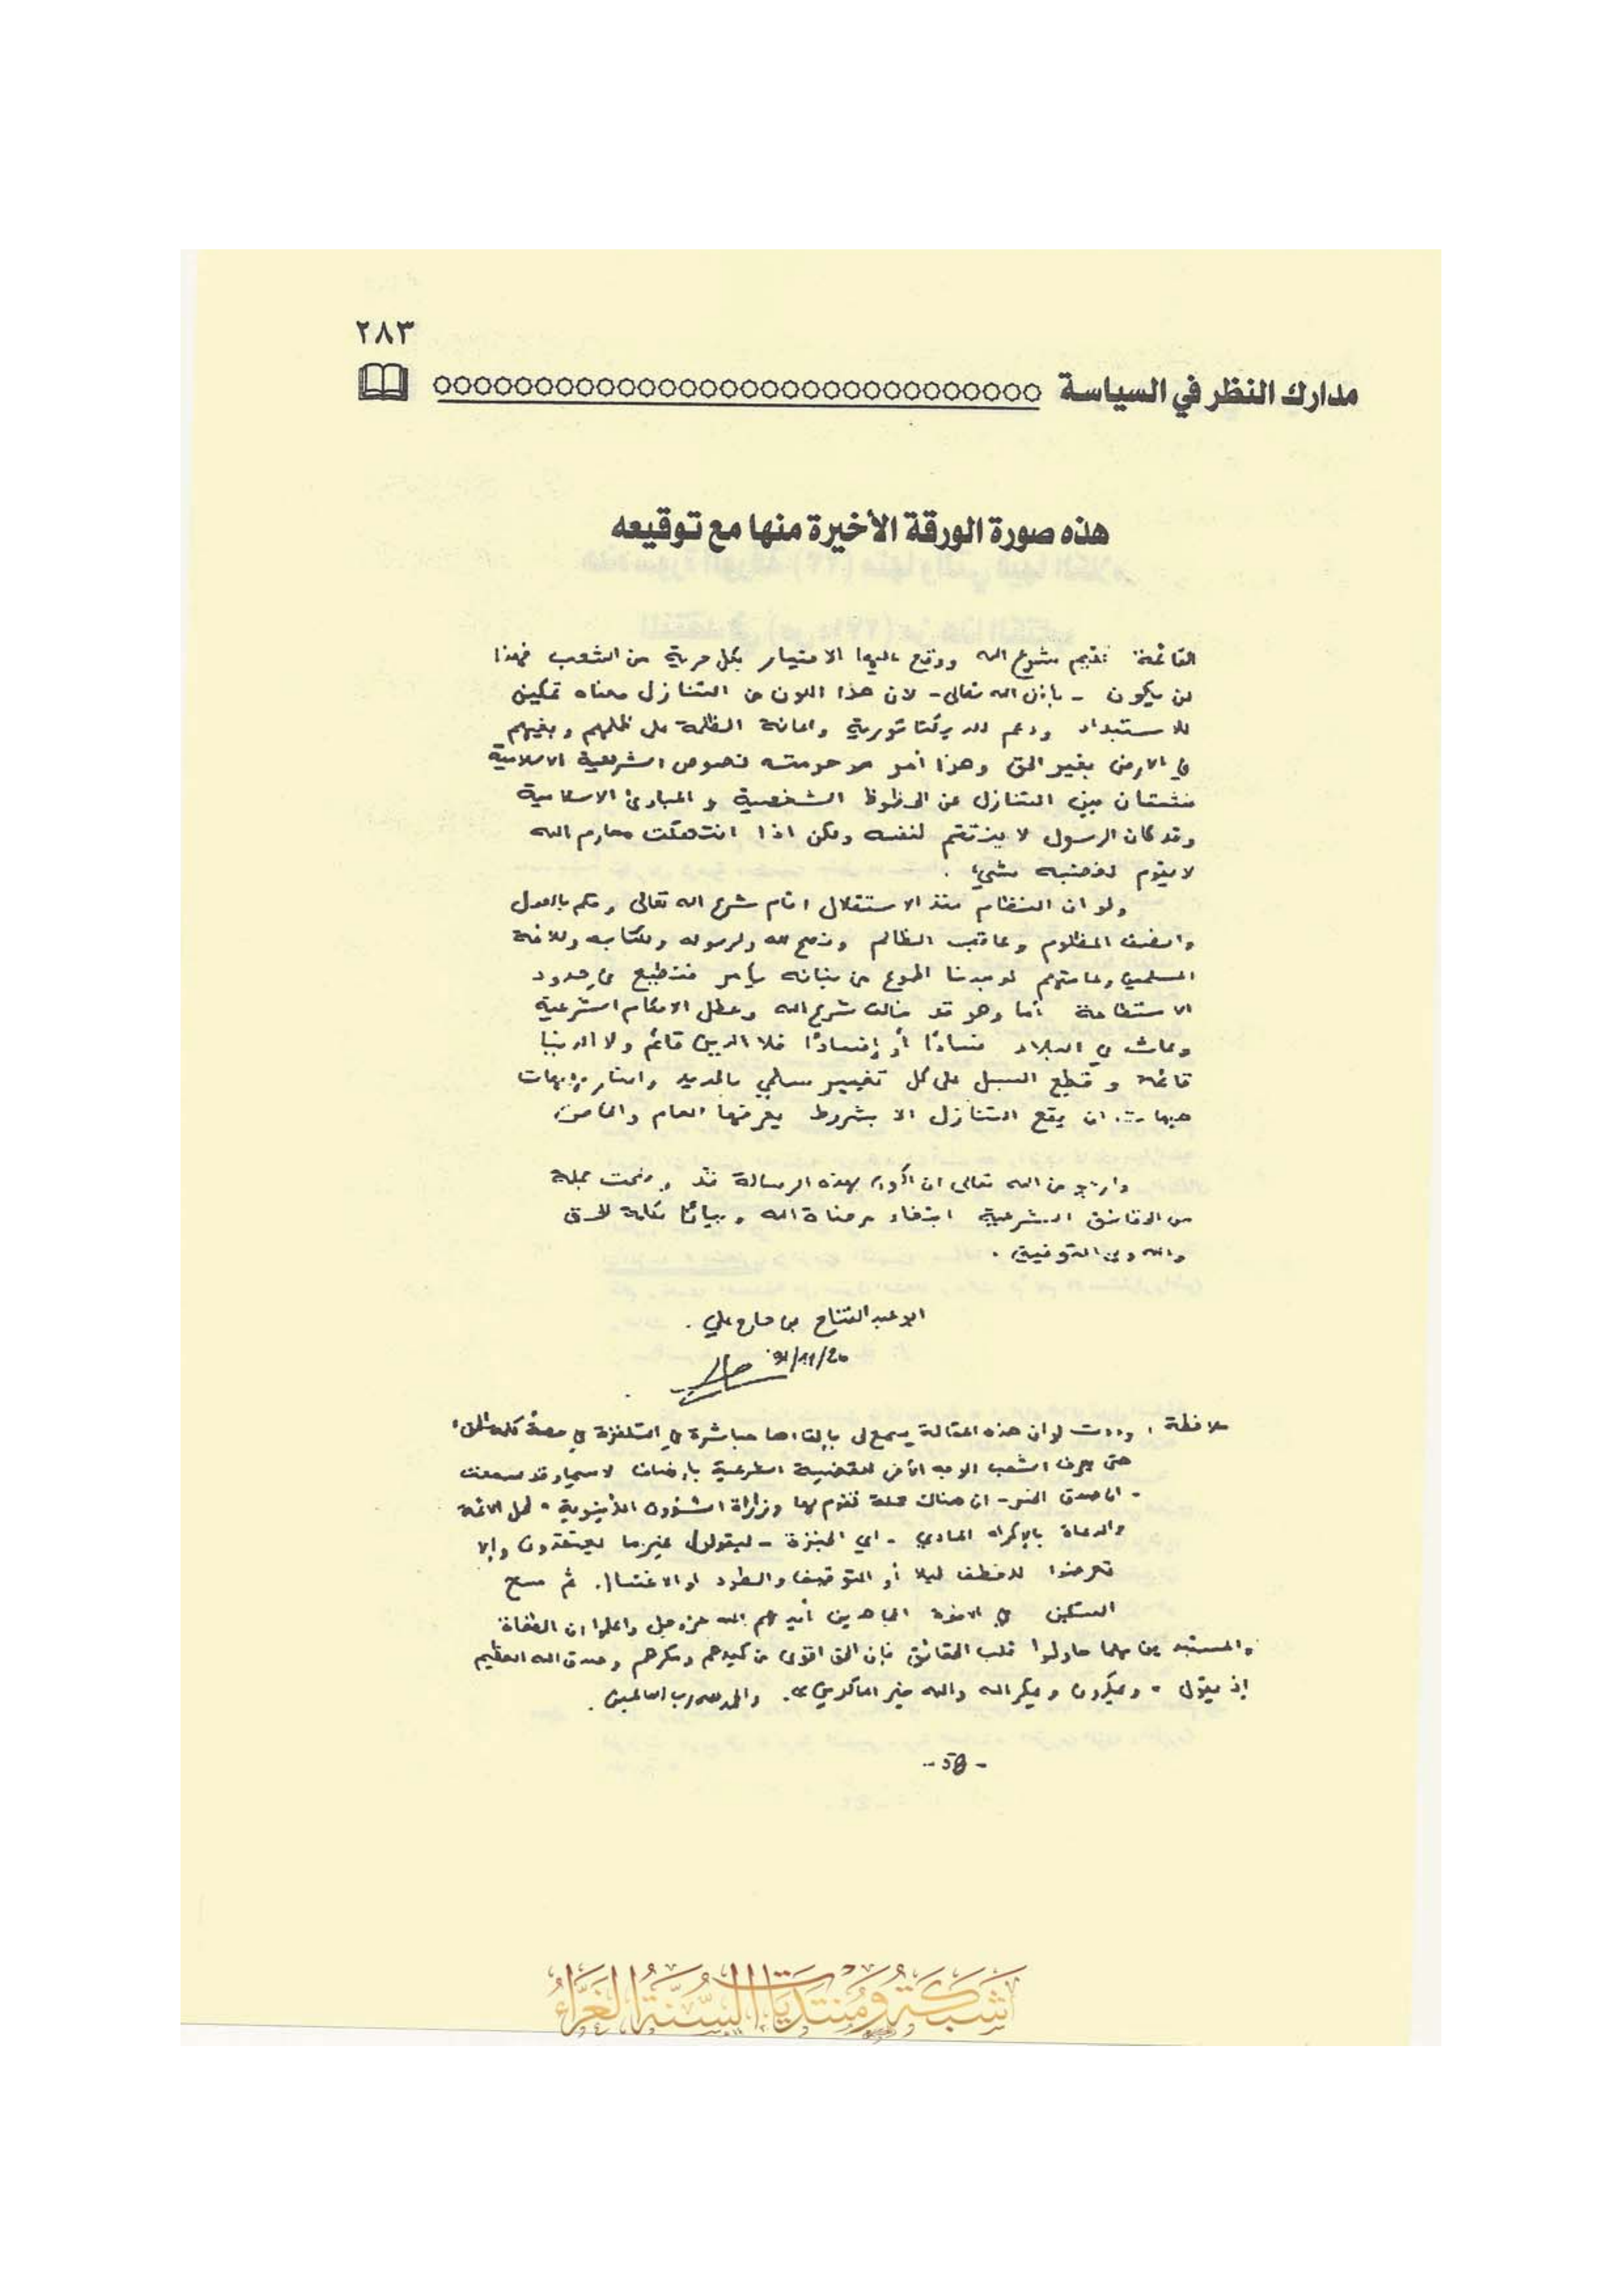 ٢٨٣
مدارك النظر في السياسة
هذه صورة الورقة الأخيرة منها مع توقيعه
القائمة تقيم شرع الله ووقع عليها الاختيار بكل حرية من الشعب فهذا
لن يكون - بإذن الله تعالى - لان هذا اللون من التنازل معناه تمكين
للاستبداد ودعم للديكتاتورية واعانة الظلمة على ظلمهم وبغيهم
في الارض بغير الحق وهذا أمر حرمته نصوص الشريعة الاسلامية
فشتان بين التنازل عن الحظوظ الشخصية و المبادئ الاسلامية
وقد كان الرسول لا ينتقم لنفسه ولكن اذا انتهكت محارم الله
لا يقوم لغضبه شيء .
ولو ان النظام منذ الاستقلال اقام شرع الله تعالى وحكم بالعدل
وانصف المظلوم وعاقب الظالم ونصح لله ولرسوله ولكتابه وللائمة
المسلمين وعامتهم لوجدنا اطوع من بنانه يأمر فنطيع في حدود
الاستطاعة أما وهو قد خالف شرع الله وعطل الاحكام الشرعية
وعاث في البلاد فسادًا أو إفسادًا فلا الدين قائم ولا الدنيا
قائمة و قطع السبل على كل تغيير سلمي بالحديد والنار فهيهات
هيهات. ان يقع التنازل الا بشروط يعرفها العام والخاص
وارجو من الله تعالى ان أكون بهذه الرسالة قد وضحت جملة
من الحقائق الشرعية ابتغاء مرضاة الله وبيانًا لكلمة الحق
والله ولي التوفيق .
ابو عبد الفتاح بن حاج علي .
91/11/20
ملاحظة : وددت لو ان هذه المقالة يسمع لي بإلقاءها مباشرة في التلفزة في حصة كلمة الحق
حتى يعرف الشعب الوجه الآخر للقضية الشرعية بإنصاف لاسيما وقد سمعت
- ان صدق الخبر - ان هناك حملة تقوم بها وزارة الشؤون الدينية " لحمل الائمة
والدعاة بالإكراه المادي - اي الخبزة - ليقولوا غير ما يعتقدون وإلا
تعرضوا للخطف ليلا أو التوقيف والطرد او الاغتيال. ثم مسح
السكين في الاخوة المجاهدين أيدهم الله عز وجل واعلموا ان الطغاة
والمستبدين مهما حاولوا قلب الحقائق فإن الحق اقوى من كيدهم ومكرهم وصدق الله العظيم
إذ يقول " ويمكرون ويمكر الله والله خير الماكرين ". والحمد لله رب العالمين .
- 58 -
شبكة ومنتديات السنة الغراء